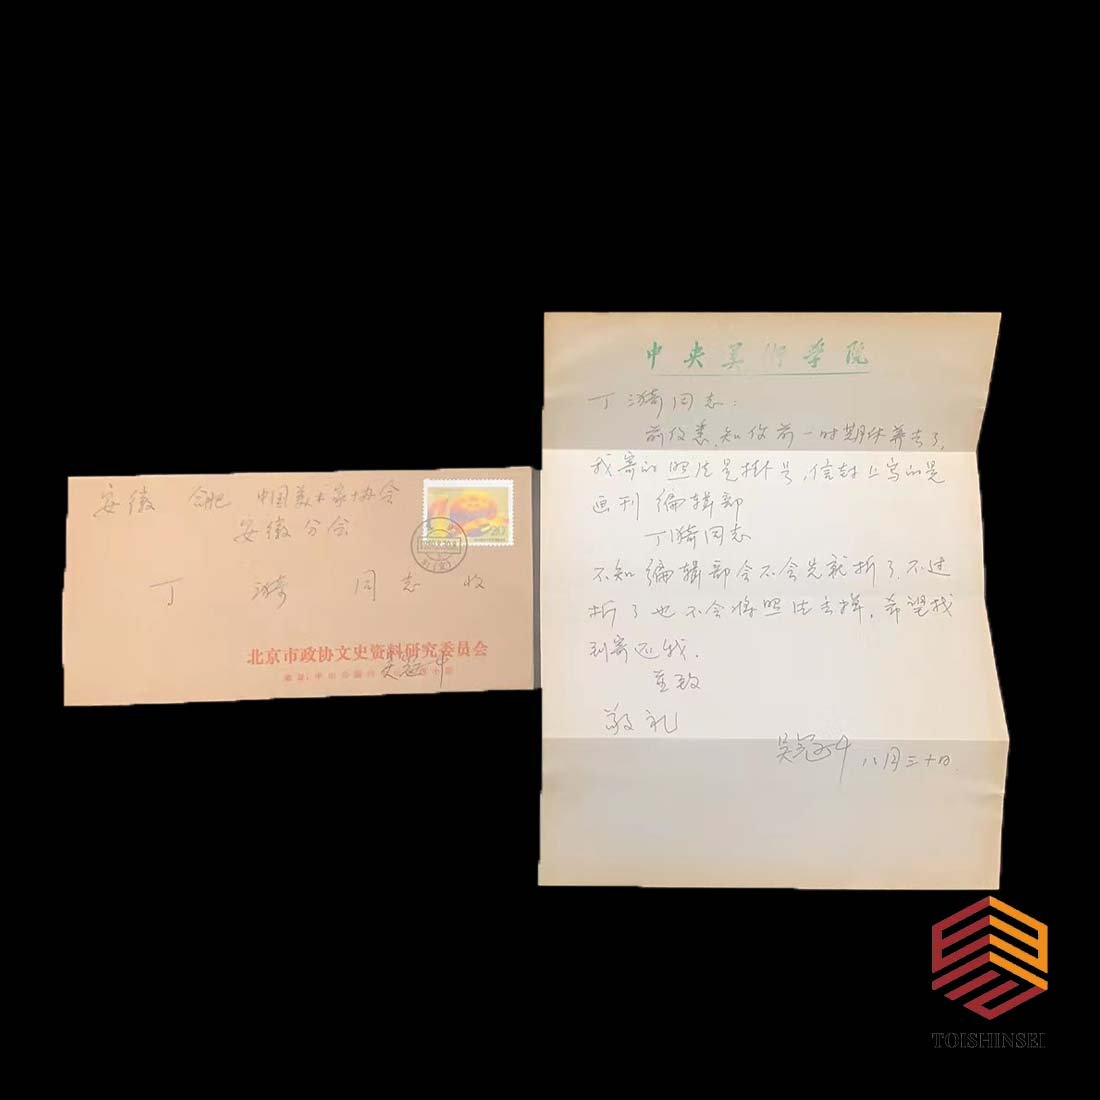 安徽 合肥 中国美术家协会
安徽分会
20
丁 漪 同志 收
北京市政协文史资料研究委员会
吴冠中
中央美術学院
丁漪同志：
前仅悉，知你前一时期休养去了，
我寄的照片是挂号，信封上写的是
画刊编辑部
丁漪同志
不知编辑部会不会先就拆了，不过
拆了也不会将照片丢掉，希望找
到寄还我，
至致
敬礼
吴冠中 八月三十日
TOISHINSEI